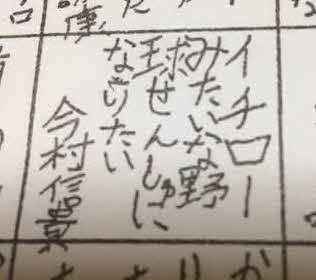 イチロー
みたいな野
球せんしゅに
なりたい
今村信貴